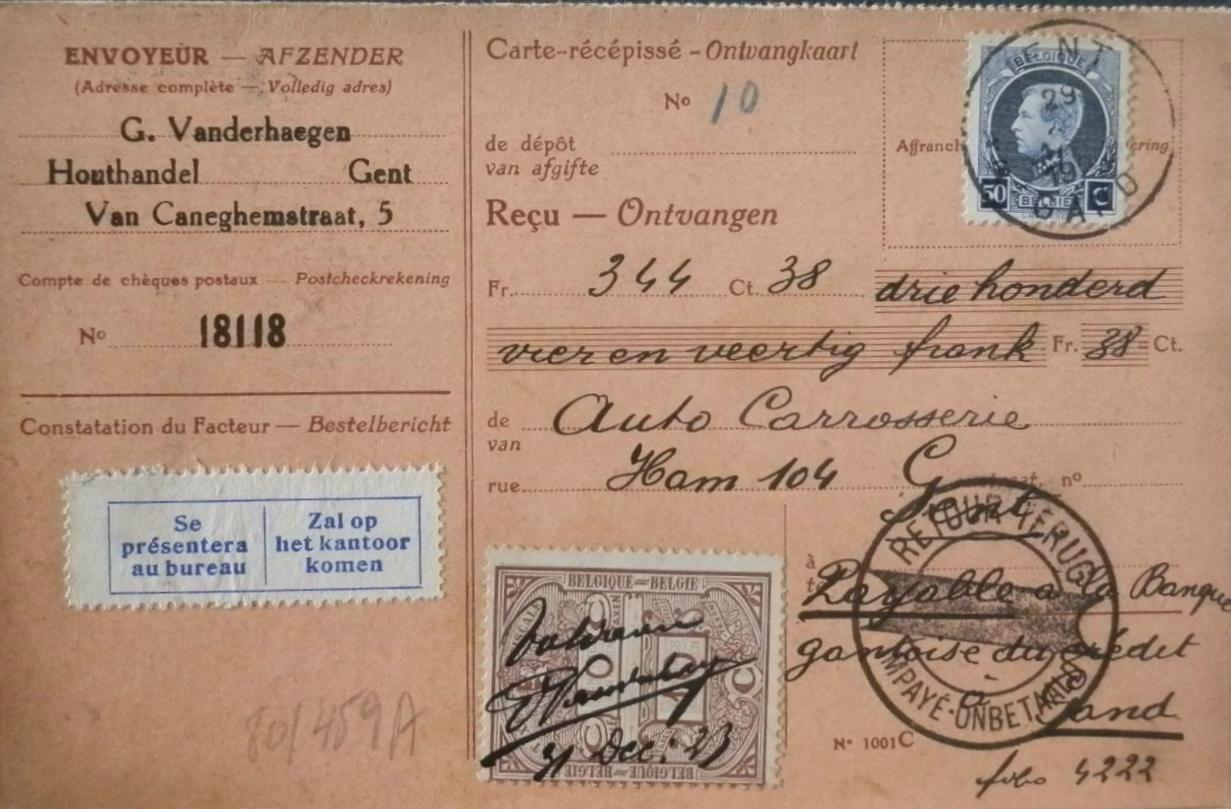 ENVOYEUR — AFZENDER
(Adresse complète — Volledig adres)
G. Vanderhaegen
Houthandel Gent
Van Caneghemstraat, 5
Compte de chèques postaux — Postcheckrekening
No 18118
Constatation du Facteur — Bestelbericht
Se présentera au bureau
Zal op het kantoor komen
FO/459A
Carte-récépissé - Ontvangkaart
No 10
de dépôt
van afgifte
Reçu — Ontvangen
Fr. 344 Ct. 38 drie honderd
vier en veertig frank Fr. 38 Ct.
de van Auto Carrosserie
rue Ham 104 Gent nº
à
Payable à la Banque
gantoise du crédit
à Gand
Nº 1001C
folio 4222
BELGIQUE - BELGIË
31 Dec. 23
BELGIQUE - BELGIË
BELGIQUE
50 C
BELGIË
GENT
29
19
GAND
RETOUR-TERUG
IMPAYÉ-ONBETAALD